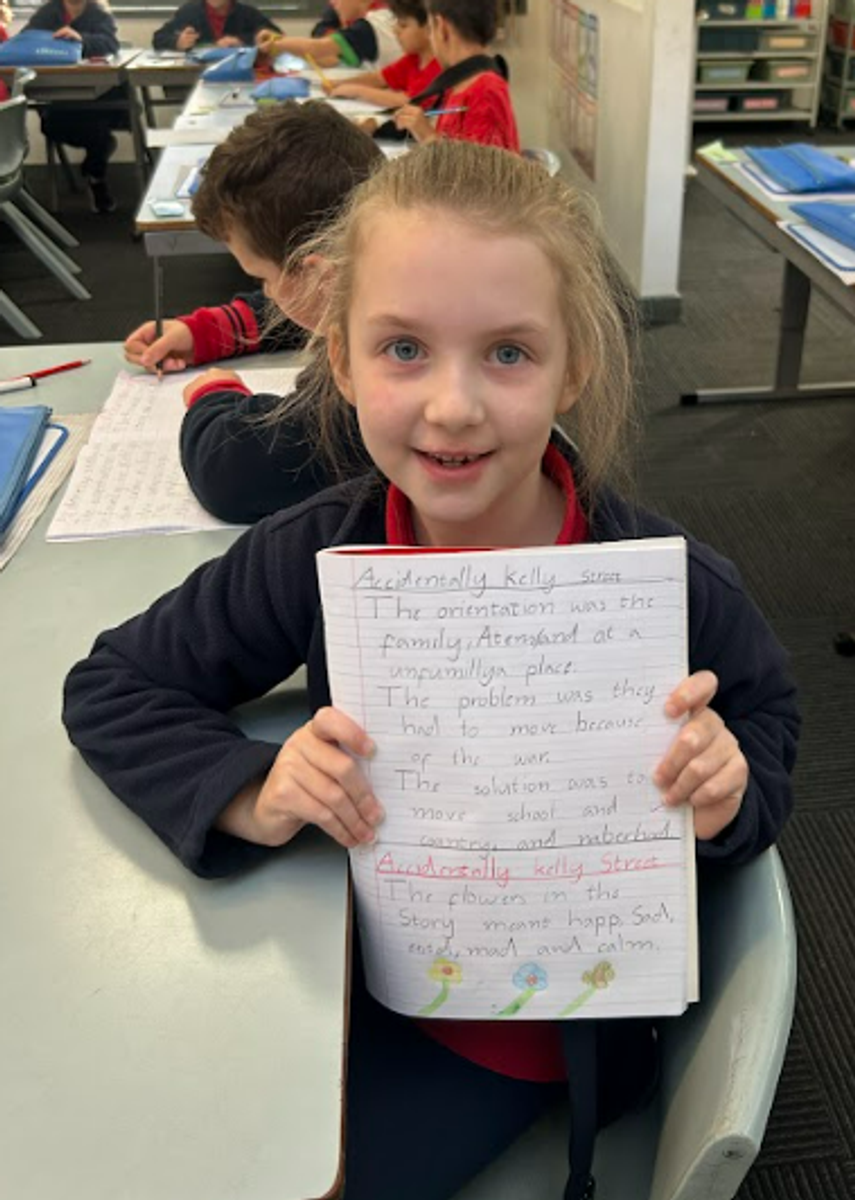 Accidentally Kelly Street
The orientation was the
family, Atem, and at a
unfumillya place.
The problem was they
had to move because
of the war.
The solution was to
move school and
country, and naberhud.
Accidentally kelly Street
The flowers in the
Story meant happ, Sad,
mad and calm.